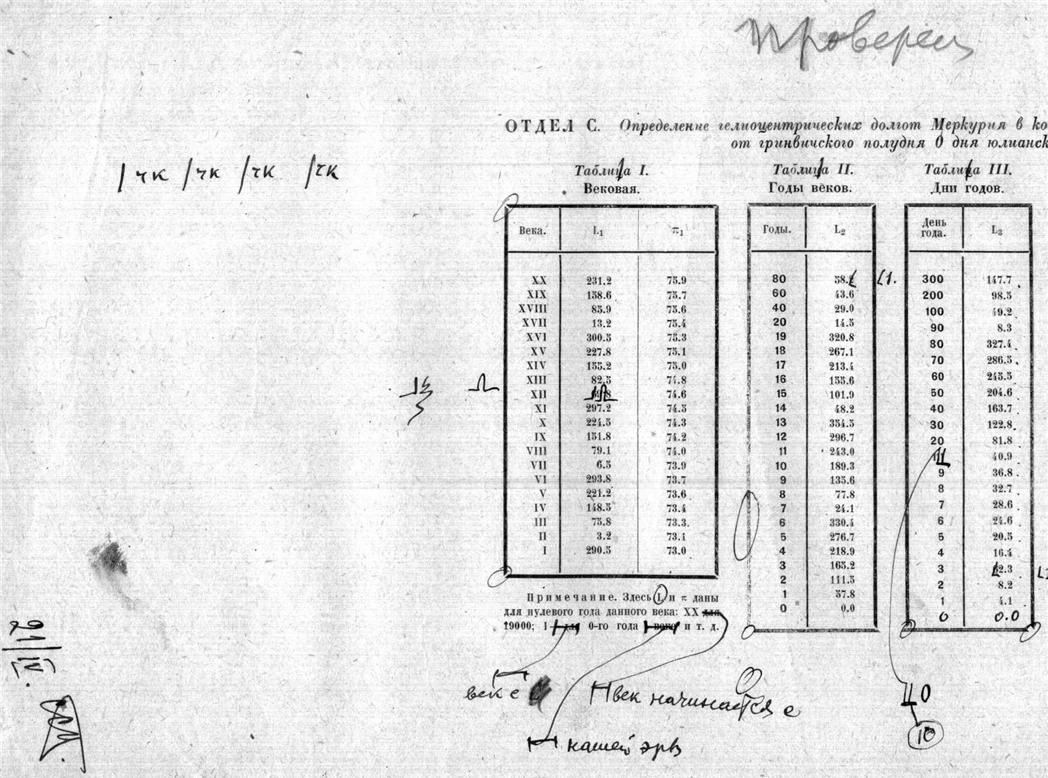 Проверен
ОТДЕЛ С. Определение гелиоцентрических долгот Меркурия в ко
от гринвичского полудня 0 дня юлианск
/чк /чк /чк /чк
Таблица I.
Вековая.
Века. L₁ π₁
XX 231.2 75.9
XIX 158.6 75.7
XVIII 85.9 75.6
XVII 13.2 75.4
XVI 300.5 75.3
XV 227.8 75.1
XIV 155.2 75.0
XIII 82.5 74.8
XII 74.6
XI 297.2 74.5
X 224.5 74.3
IX 151.8 74.2
VIII 79.1 74.0
VII 6.5 73.9
VI 293.8 73.7
V 221.2 73.6
IV 148.5 73.4
III 75.8 73.3
II 3.2 73.1
I 290.5 73.0
Примечание. Здесь L и π даны
для нулевого года данного века: XX для
19000; I для 0-го года I века и т. д.
Таблица II.
Годы веков.
Годы. L₂
80 58.2 1.
60 43.6
40 29.0
20 14.5
19 320.8
18 267.1
17 213.4
16 155.6
15 101.9
14 48.2
13 354.5
12 296.7
11 243.0
10 189.3
9 135.6
8 77.8
7 24.1
6 330.4
5 276.7
4 218.9
3 165.2
2 111.5
1 57.8
0 0.0
Таблица III.
Дни годов.
День
года. L₃
300 147.7
200 98.5
100 49.2
90 8.3
80 327.4
70 286.5
60 245.5
50 204.6
40 163.7
30 122.8
20 81.8
40.9
9 36.8
8 32.7
7 28.6
6 24.6
5 20.5
4 16.4
3 2.3
2 8.2
1 4.1
0 0.0
век с
век начинается с
нашей эры
0
10
21/IV.